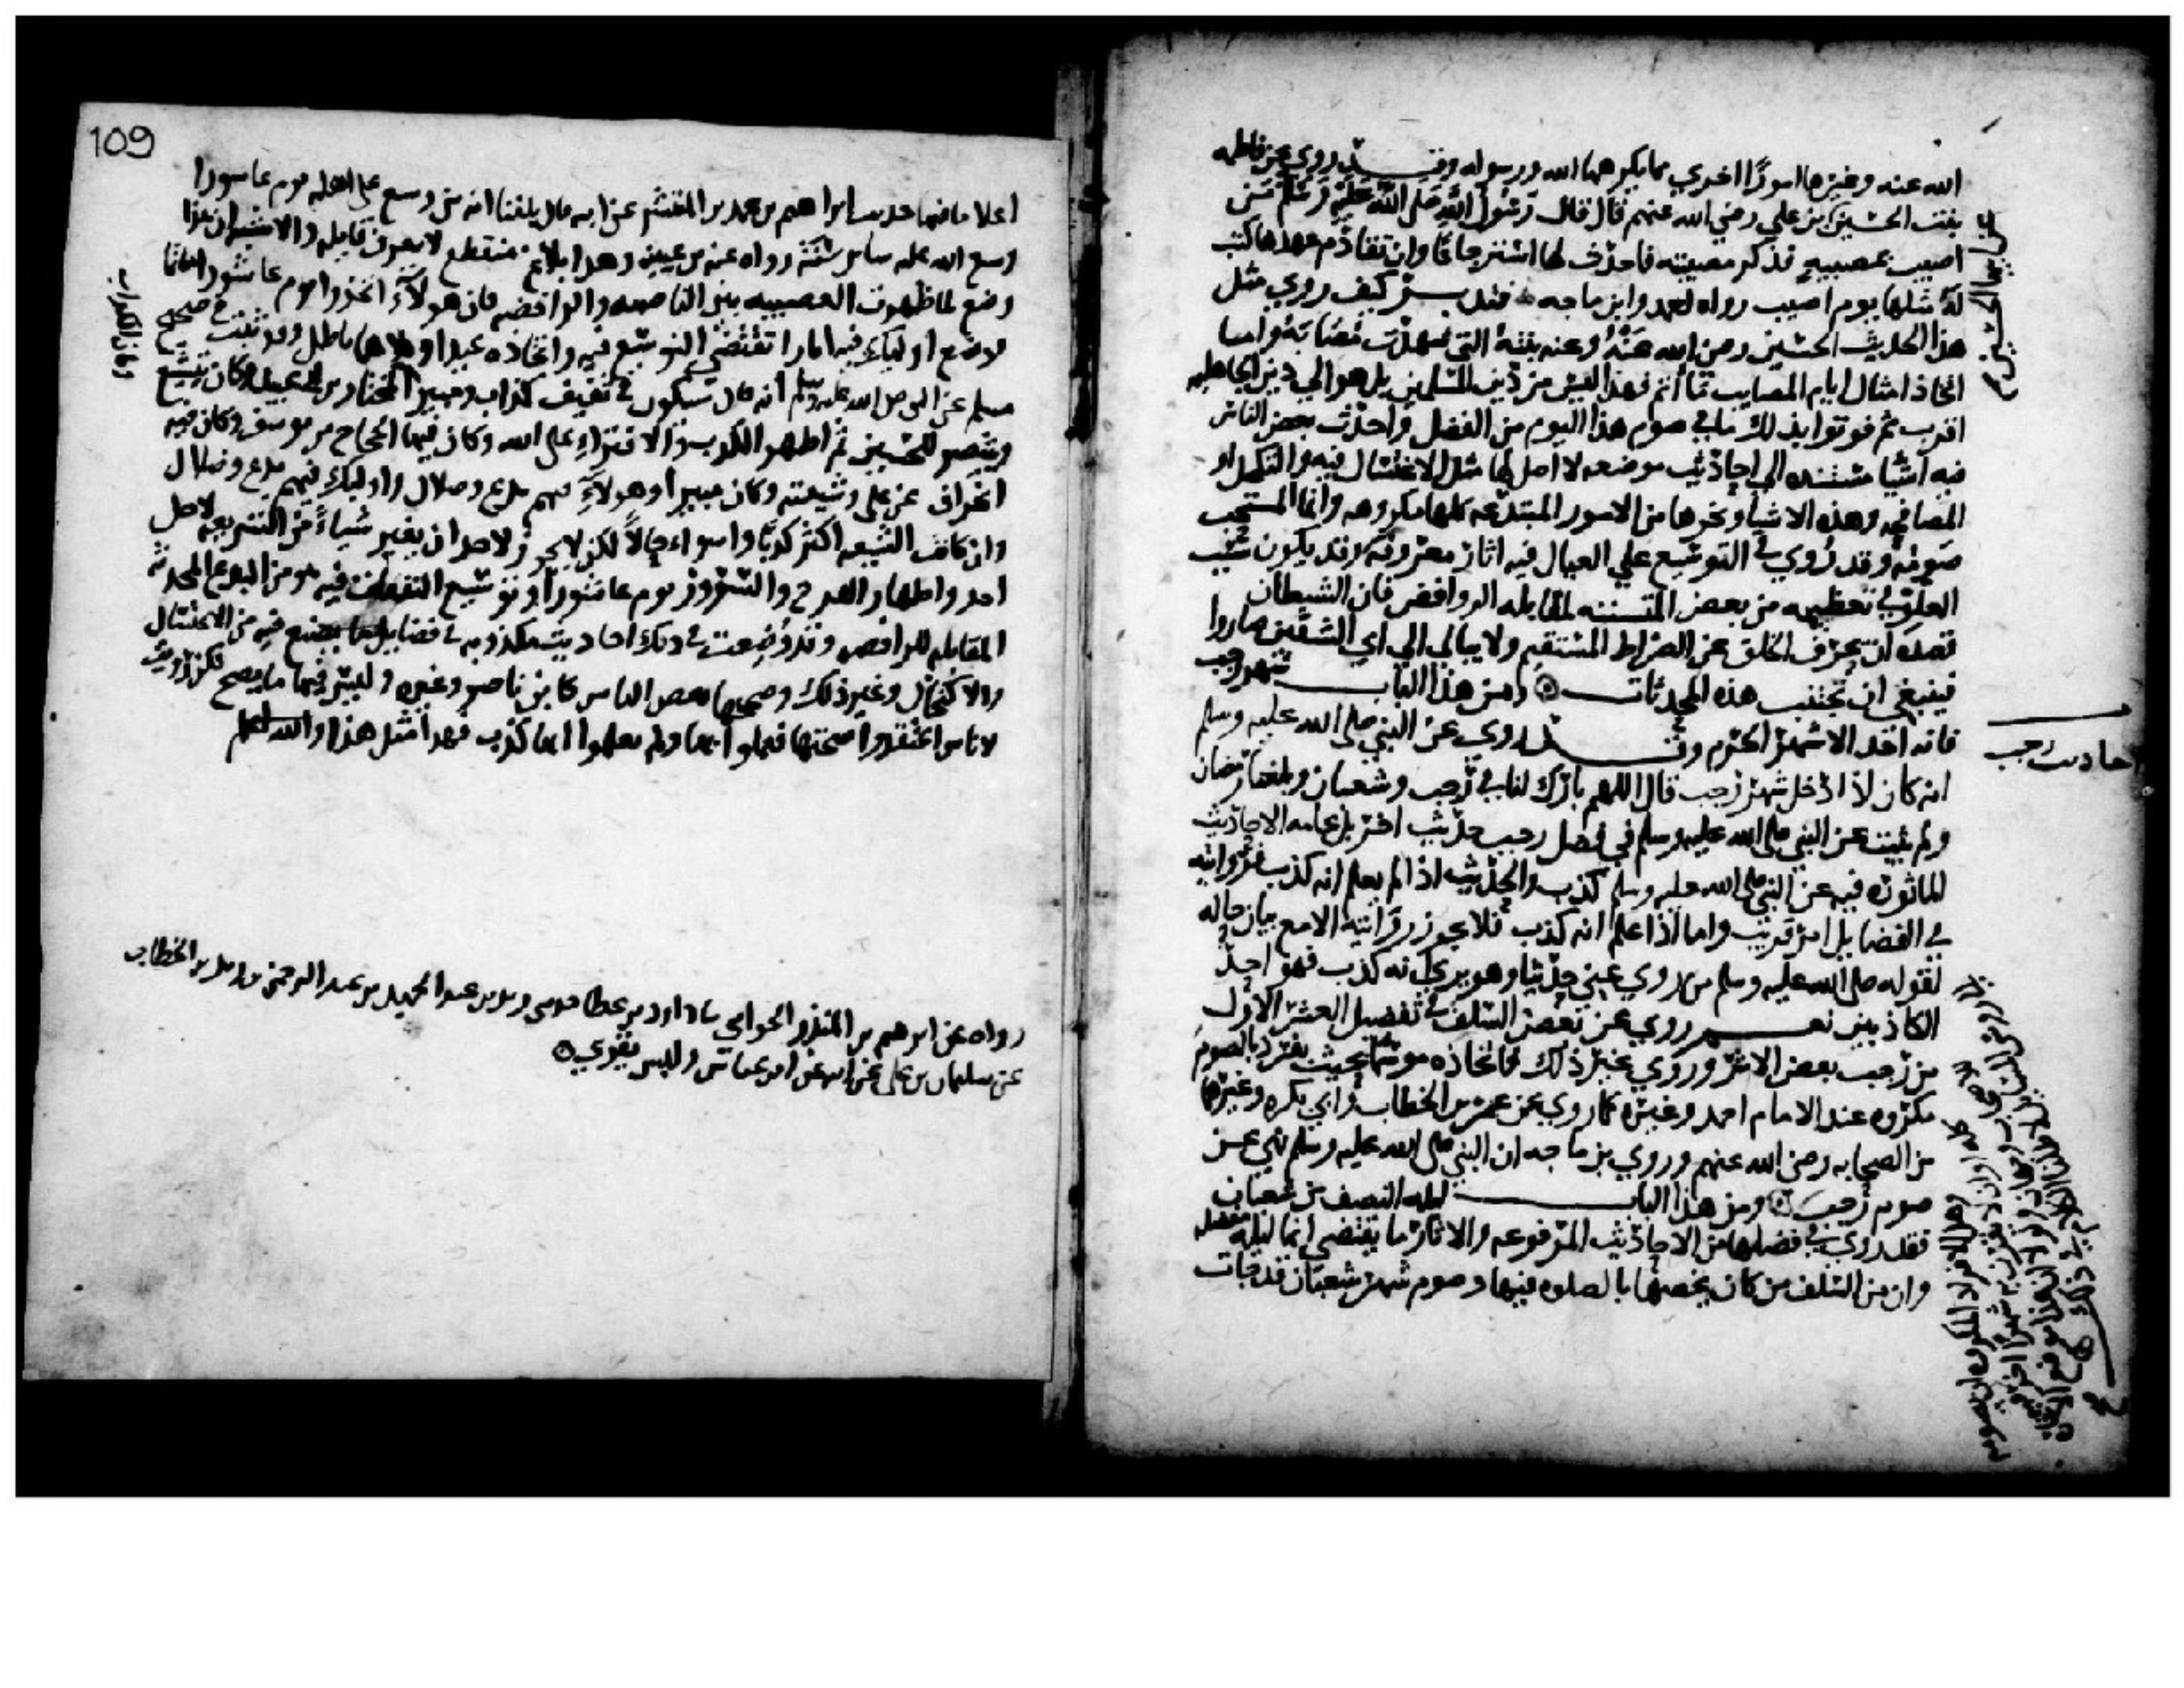 الله عنه وغيرها امورًا اخري مما يكرهها الله ورسوله وقد روي عن فاطمه
بنت الحسين بن علي رضي الله عنهم قال قال رسول الله صلى الله عليه وسلم من
اصيب بمصيبه فذكر مصيبته فاحدث لها استرجاعًا وان تقادم عهدها كتب
له مثلها يوم اصيب رواه احمد وابن ماجه فتدبر كيف روي مثل
هذا الحديث الحسين رضي الله عنه وعنه بنته التي شهدت مصابه واما
اتخاذ امثال ايام المصايب مأتم فهذا ليس من دين المسلمين بل هو الي دين الجاهليه
اقرب ثم فوتوا بذلك ما في صوم هذا اليوم من الفضل واحدث بعض الناس
فيه اشيا مستنده الي احاديث موضوعه لا اصل لها مثل الاغتسال فيه والتكحل او
المصافحه وهذه الاشيا ونحوها من الامور المبتدعه كلها مكروهه وانما المستحب
صومه وقد روي في التوسيع علي العيال فيه اثار معروفه وقد يكون سبب
الغلو في تعظيمه من بعض المتسننه لمقابله الروافض فان الشيطان
قصده ان يحرف الخلق عن الصراط المستقيم ولا يبالي الي اي الشقين صاروا
فينبغي ان تجتنب هذه المحدثات ومن هذا الباب شهر رجب
فانه احد الاشهر الحرم وقد روي عن النبي صلى الله عليه وسلم
احاديث رجب
انه كان اذا دخل شهر رجب قال اللهم بارك لنا في رجب وشعبان وبلغنا رمضان
ولم يثبت عن النبي صلى الله عليه وسلم في فضل رجب حديث اخر بل عامه الاحاديث
الماثوره فيه عن النبي صلى الله عليه وسلم كذب والحديث اذا لم يعلم انه كذب فروايته
في الفضايل امر قريب واما اذا علم انه كذب فلا يجوز روايته الا مع بيان حاله
لقوله صلى الله عليه وسلم من روي عني حديثا وهو يري انه كذب فهو احد
الكاذبين نعم روي عن بعض السلف في تفضيل العشر الاول
من رجب بعض الاثر وروي غير ذلك فاتخاذه موسما بحيث يفرد بالصوم
مكروه عند الامام احمد وغيره كما روي عن عمر بن الخطاب وابي بكره وغيرها
من الصحابه رضي الله عنهم وروي بن ماجه ان النبي صلى الله عليه وسلم نهي عن
صوم رجب ومن هذا الباب ليله النصف من شعبان
فقد روي في فضلها من الاحاديث المرفوعه والاثار ما يقتضي انها ليله مفضله
وان من السلف من كان يخصها بالصلوه فيها وصوم شهر شعبان قد جات
109
اعلا ما فيها حديث ابراهيم بن محمد بن المنتشر عن ابيه قال بلغنا انه من وسع على اهله يوم عاشورا
وسع الله عليه ساير سنته رواه عنه بن عيينه وهذا بلاغ منقطع لا يعرف قايله والاشبه ان هذا
وضع لما ظهرت العصبيه بين الناصبه والرافضه فان هولآء اتخذوا يوم عاشورا ماتما
فوضع اوليك فيه اثارا تقتضي التوسيع فيه واتخاذه عيدا وكلاهما باطل وقد ثبت في صحيح
مسلم عن النبي صلى الله عليه وسلم انه قال سيكون في ثقيف كذاب ومبير المختار بن ابي عبيد وكان يتشيع
وينتصر للحسين ثم اظهر الكذب والافتراء على الله وكان فيها الحجاج بن يوسف وكان فيه
انحراف عن علي وشيعته وكان مبيرا وهولآء فيهم بدع وضلال واوليك فيهم بدع وضلال
وان كانت الشيعه اكثر كذبًا واسواء حالاً لكن لا يجوز لاحد ان يغير شياءً من الشريعه لاجل
احد واظهار الفرح والسرور يوم عاشورآ وتوسيع النفقات فيه هو من البدع المحدثه
المقابله للرافضه وقد وضعت في ذلك احاديث مكذوبه في فضايل ما يصنع فيه من الاغتسال
والاكتحال وغير ذلك وصححها بعض الناس كابن ناصر وغيره وليس فيها ما يصح لكن رويت
لاناس اعتقدوا صحتها فعملوا بها ولم يعلموا انها كذب فهذا مثل هذا والله اعلم
رواه عن ابرهيم بن المنذر الحزامي داود بن عطا عن زيد بن عبد الحميد بن عبد الرحمن بن زيد بن الخطاب
عن سليمان بن علي عن ابيه عن ابن عباس وليس بقوي